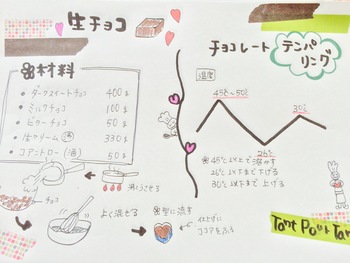 生チョコ
※材料
・ダークスイートチョコ 400g
・ミルクチョコ 100g
・ビターチョコ 50g
・生クリーム(酒) 330g
・コアントロー(酒) 50g
沸とうさせる
チョコ
よく混ぜる
※型に流す
仕上げに
ココアをふる
チョコレート テンパリング
温度
45℃~50℃
30℃
26℃
※45℃以上で溶かす
26℃以下まで下げる
30℃以下まで上げる
Tant Pour Tant